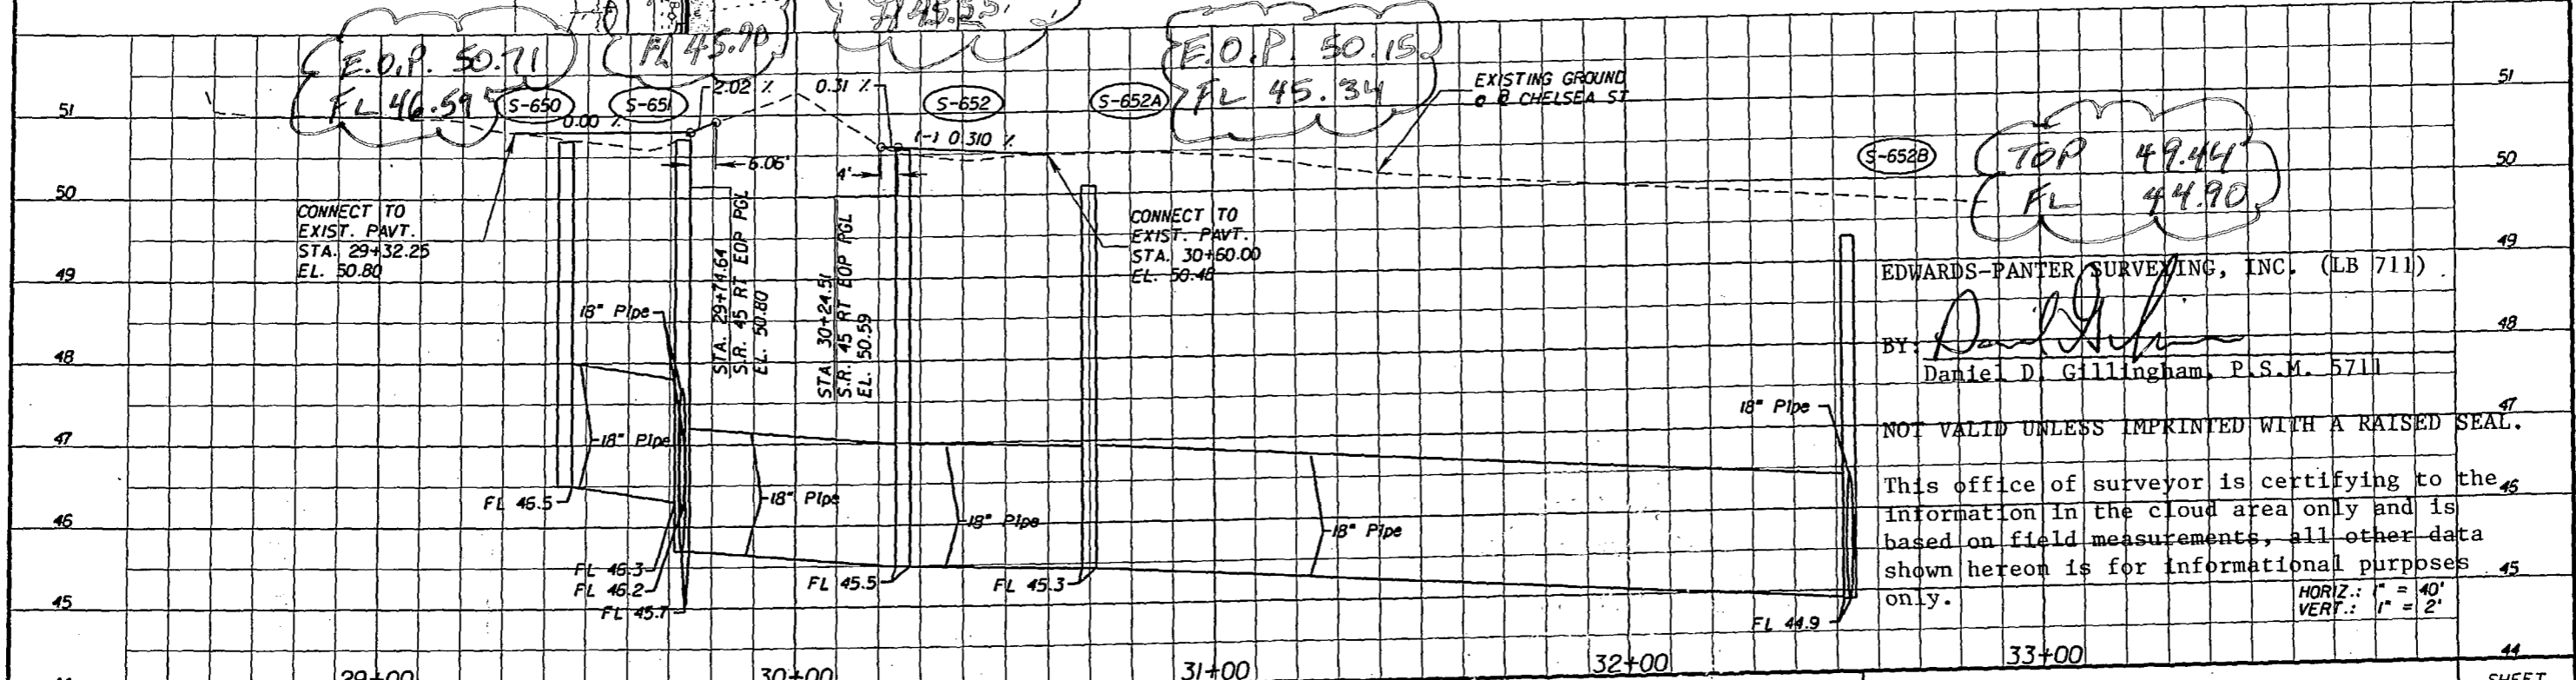 E.O.P. 50.71
FL 46.59
FL 45.90
E.O.P. 50.15
FL 45.34
TOP 49.44
FL 44.90
S-650
S-651
S-652
S-652A
S-652B
0.00 %
2.02 %
0.31 %
(-) 0.310 %
6.06'
4'
EXISTING GROUND
@ CHELSEA ST
CONNECT TO
EXIST. PAVT.
STA. 29+32.25
EL. 50.80
STA. 29+74.64
S.R. 45 RT EOP PGL
EL. 50.80
STA. 30+24.51
S.R. 45 RT EOP PGL
EL. 50.59
CONNECT TO
EXIST. PAVT.
STA. 30+60.00
EL. 50.48
18" Pipe
18" Pipe
18" Pipe
18" Pipe
18" Pipe
18" Pipe
FL 46.5
FL 46.3
FL 46.2
FL 45.7
FL 45.5
FL 45.3
FL 44.9
51
50
49
48
47
46
45
51
50
49
48
47
46
45
44
EDWARDS-PANTER SURVEYING, INC. (LB 711)
BY:
Daniel D. Gillingham, P.S.M. 5711
NOT VALID UNLESS IMPRINTED WITH A RAISED SEAL.
This office of surveyor is certifying to the
information in the cloud area only and is
based on field measurements, all other data
shown hereon is for informational purposes
only.
HORIZ.: 1" = 40'
VERT.: 1" = 2'
29+00
30+00
31+00
32+00
33+00
SHEET